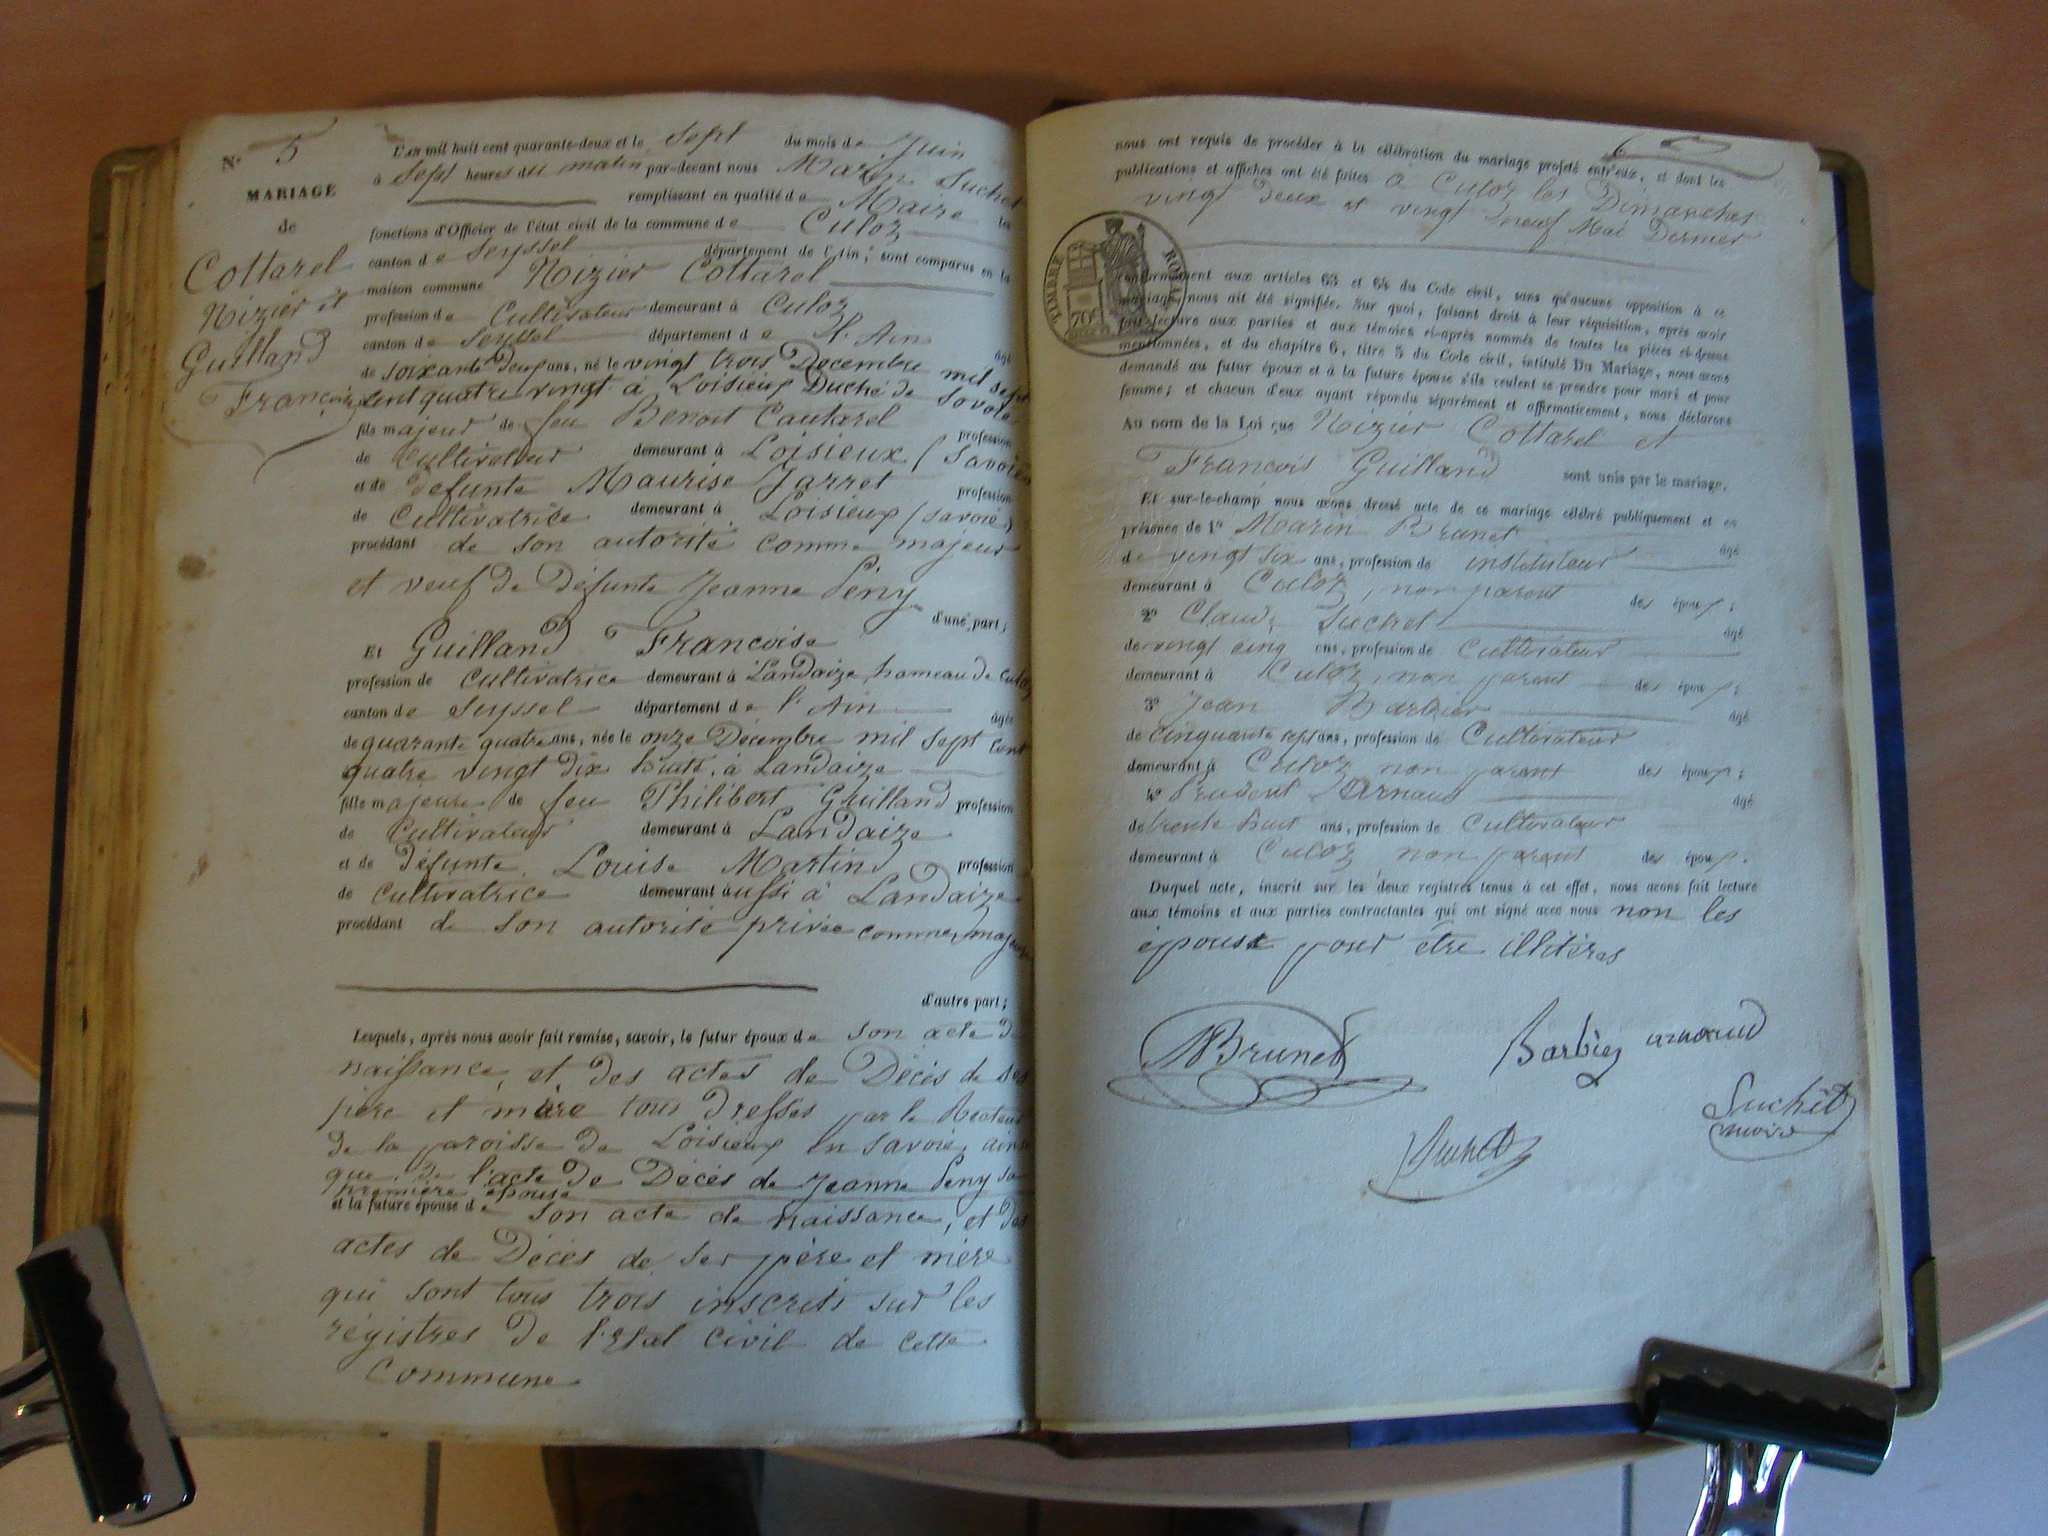 N° 5
MARIAGE
de
Cottarel
Nizier et
Guilland
Françoise
L'an mil huit cent quarante-deux et le sept du mois de Juin
à sept heures du matin par-devant nous Marin Suchet
remplissant en qualité de Maire les
fonctions d'Officier de l'état civil de la commune de Culoz
canton de Seyssel département de l'Ain; sont comparus en la
maison commune Nizier Cottarel
profession de Cultivateur demeurant à Culoz
canton de Seyssel département de l'Ain âgé
de soixante deux ans, né le vingt trois Décembre mil sept
cent quatre vingt à Loisieux Duché de Savoie
fils majeur de feu Benoit Cautarel profession
de Cultivateur demeurant à Loisieux (Savoie)
et de défunte Maurise Jarret profession
de Cultivatrice demeurant à Loisieux (Savoie)
procédant de son autorité comme majeur
et veuf de Défunte Jeanne Pény
d'une part;
Et Guilland Françoise
profession de Cultivatrice demeurant à Landaize hameau de Culoz
canton de Seyssel département de l'Ain âgée
de quarante quatre ans, née le onze Décembre mil sept cent
quatre vingt dix huit, à Landaize
fille majeure de feu Philibert Guilland profession
de Cultivateur demeurant à Landaize
et de défunte Louise Martin profession
de Cultivatrice demeurant aussi à Landaize
procédant de son autorité privée comme majeure
d'autre part;
Lesquels, après nous avoir fait remise, savoir, le futur époux de son acte de
naissance, et des actes de Décès de ses
père et mère tous dressés par le Recteur
de la paroisse de Loisieux en Savoie, ainsi
que de l'acte de Décès de Jeanne Pény sa
première épouse
et la future épouse de son acte de naissance, et des
actes de Décès de ses père et mère
qui sont tous trois inscrits sur les
régistres de l'Etat civil de cette
Commune
6
nous ont requis de procéder à la célébration du mariage projeté entr'eux, et dont les
publications et affiches ont été faites à Culoz les Dimanches
vingt deux et vingt neuf Mai Dernier
TIMBRE ROYAL
70c
conformément aux articles 63 et 64 du Code civil, sans qu'aucune opposition à ce
mariage nous ait été signifiée. Sur quoi, faisant droit à leur réquisition, après avoir
fait lecture aux parties et aux témoins ci-après nommés de toutes les pièces ci-dessus
mentionnées, et du chapitre 6, titre 5 du Code civil, intitulé Du Mariage, nous avons
demandé au futur époux et à la future épouse s'ils veulent se prendre pour mari et pour
femme; et chacun d'eux ayant répondu séparément et affirmativement, nous déclarons
Au nom de la Loi que Nizier Cottarel et
Françoise Guilland sont unis par le mariage.
Et sur-le-champ nous avons dressé acte de ce mariage célébré publiquement et en
présence de 1° Marin Brunet âgé
de vingt six ans, profession de instituteur
demeurant à Culoz, non parent des époux;
2° Claude Suchet âgé
de vingt cinq ans, profession de Cultivateur
demeurant à Culoz, non parent des époux;
3° Jean Barbier âgé
de cinquante sept ans, profession de Cultivateur
demeurant à Culoz non parent des époux;
4° Prudent Arnaud âgé
de trente huit ans, profession de Cultivateur
demeurant à Culoz non parent des époux.
Duquel acte, inscrit sur les deux registres tenus à cet effet, nous avons fait lecture
aux témoins et aux parties contractantes qui ont signé avec nous non les
époux pour être illitérés
MBrunet
Barbier arnaud
Suchet
maire
Suchet